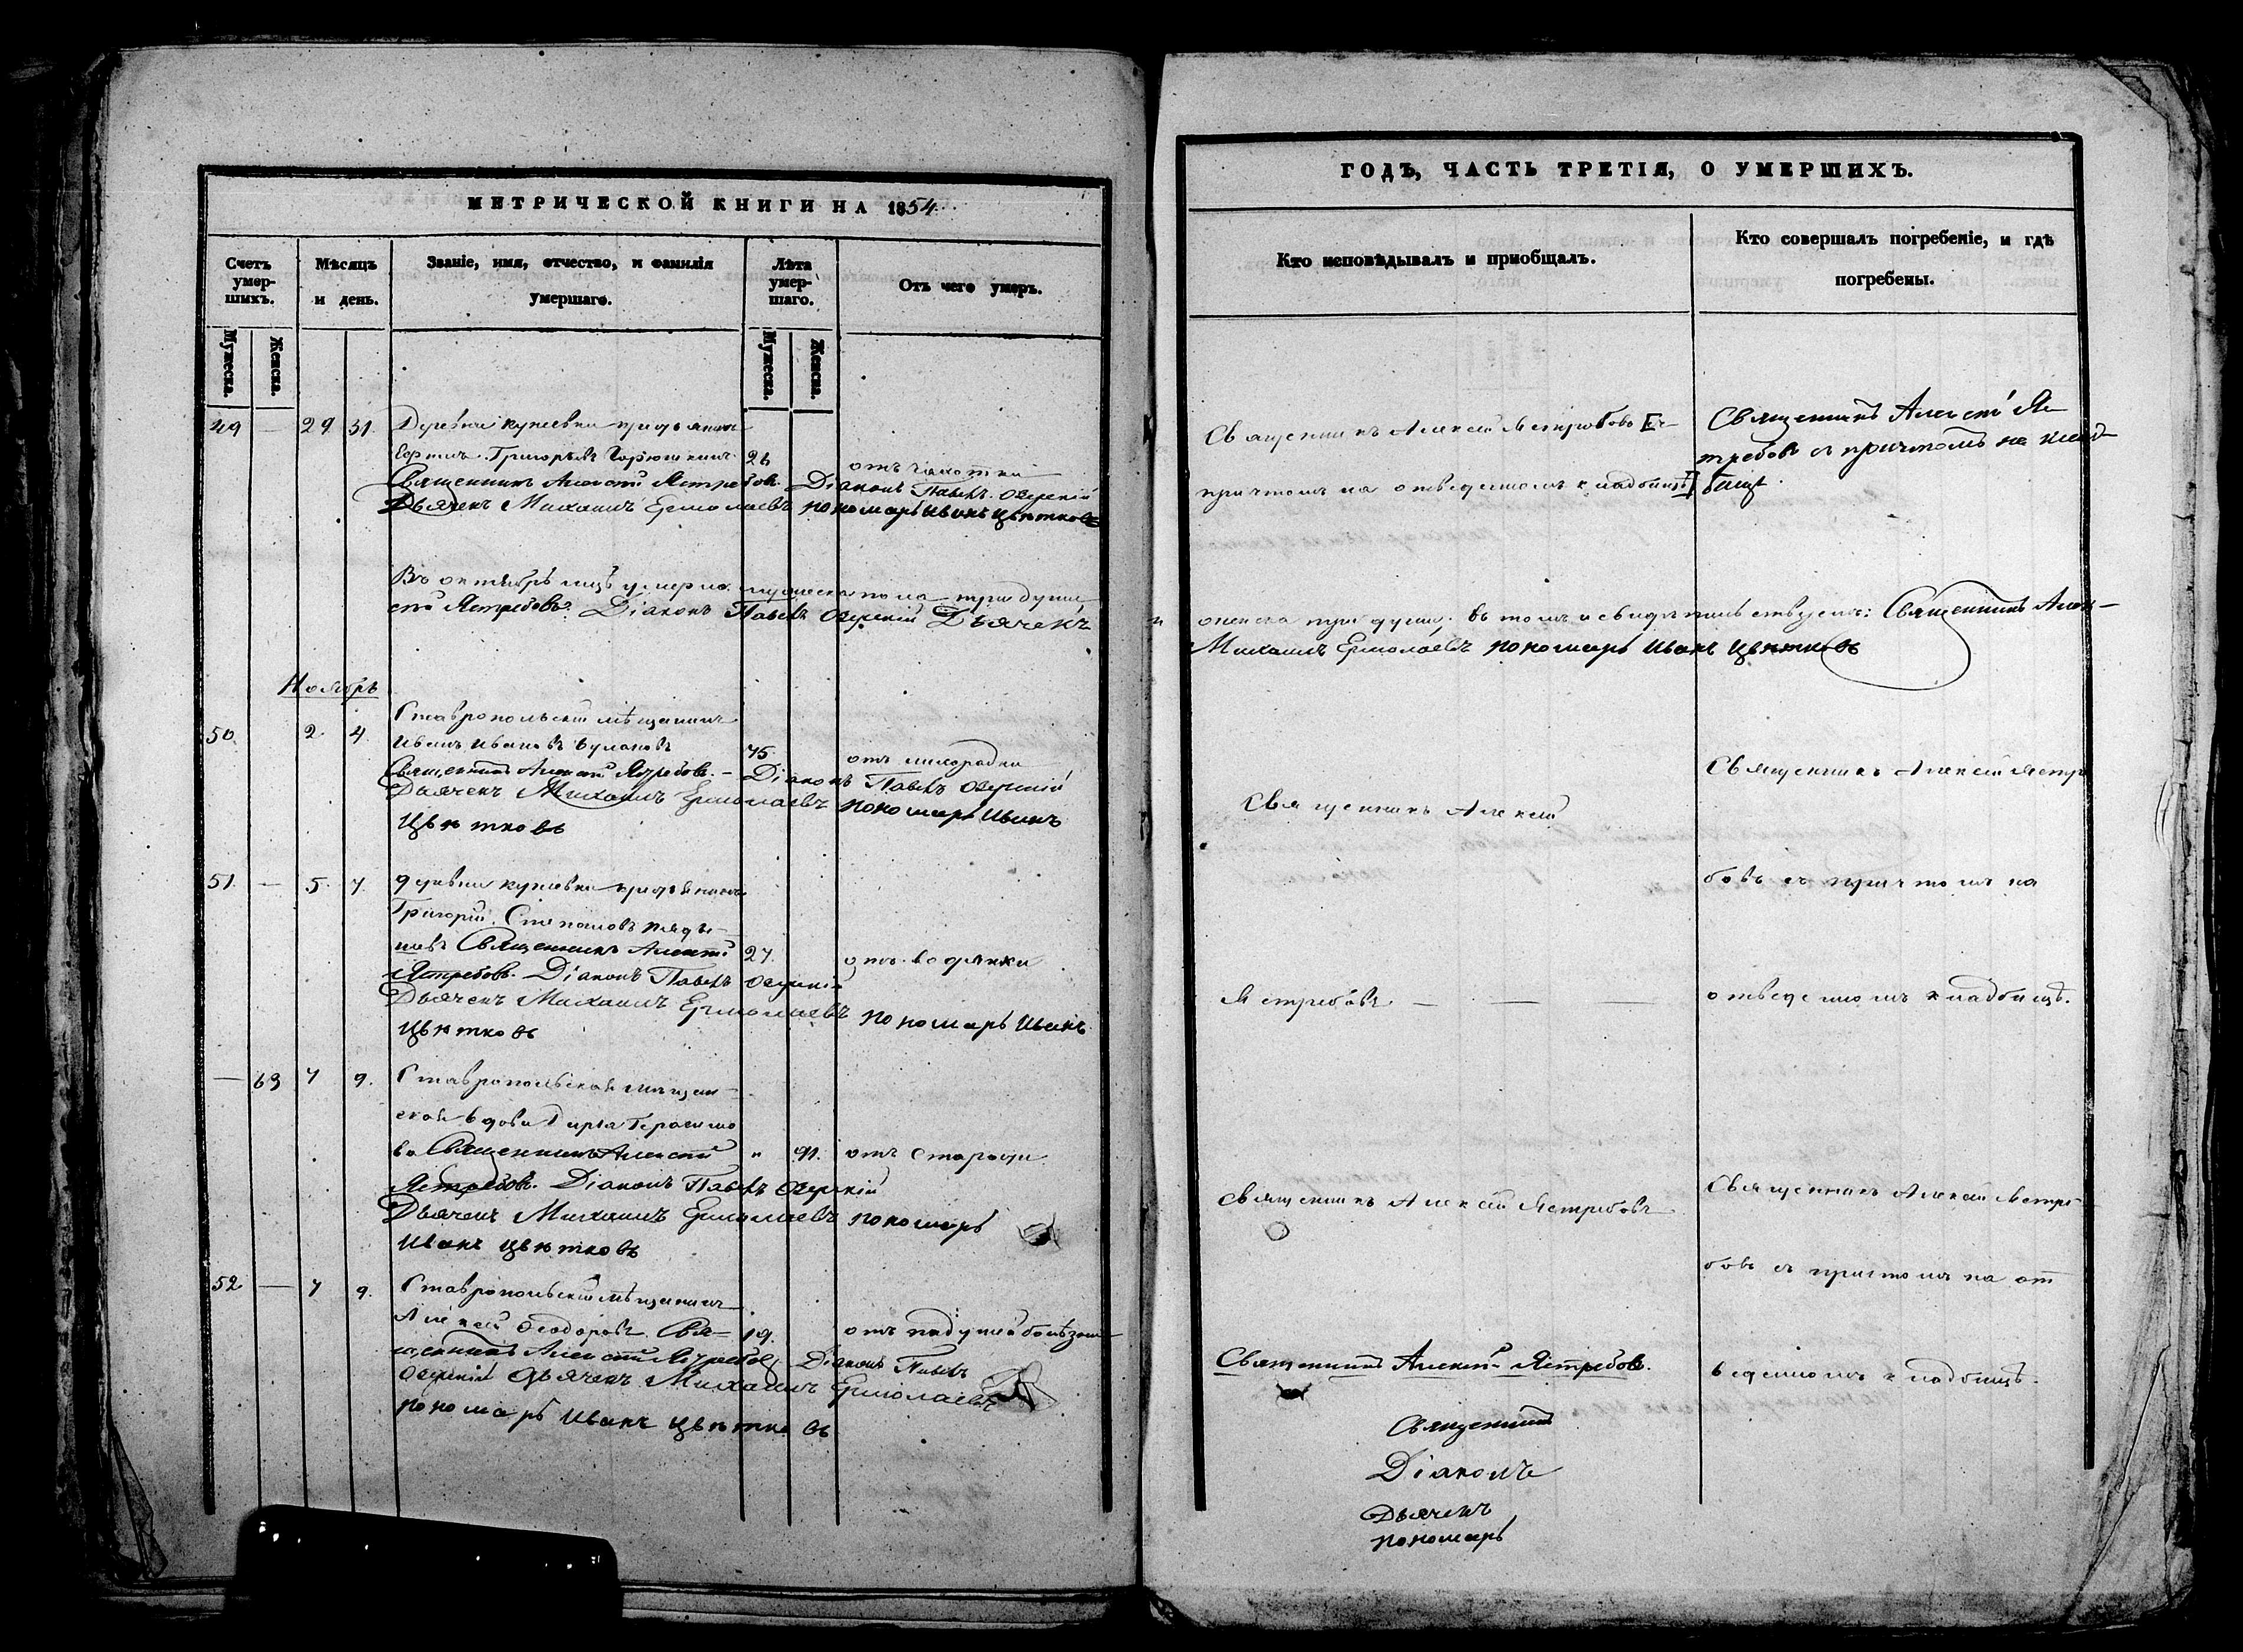 МЕТРИЧЕСКОЙ КНИГИ НА 1854
Счетъ умер-шихъ.
Мѣсяцъ и день.
Званіе, имя, отчество, и фамилія умершаго.
Лѣта умер-шаго.
Отъ чего умеръ.
Мужеска.
Женска.
Мужеска.
Женска.
49 — 29 31 Деревни Куневки крестьянинъ
Григорьевъ 26 отъ чахотки
Священникъ Алексѣй Ястребовъ. Діаконъ Павелъ Озерскій
Дьячекъ Михаилъ Ермолаевъ пономарь Иванъ Цвѣтковъ
Въ октябрѣ мцѣ умерло мужеска пола три души
Ястребовъ. Діаконъ Павелъ Озерскій Дьячекъ
Ноябрь
50. 2 4. Ставропольскій мѣщанинъ
Иванъ Ивановъ 75. отъ лихорадки
Священникъ Алексѣй Ястребовъ. – Діаконъ Павелъ Озерскій
Дьячекъ Михаилъ Ермолаевъ пономарь Иванъ
Цвѣтковъ
51. — 5. 7. деревни Куневки крестьянинъ
Григорій Степановъ
Священникъ Алексѣй 27. отъ водянки
Ястребовъ. Діаконъ Павелъ Озерскій
Дьячекъ Михаилъ Ермолаевъ пономарь Иванъ
Цвѣтковъ
— 63 7 9. Ставропольская мѣщан-
ская вдова Дарья Герасимо
ва Священникъ Алексѣй " 91. отъ старости
Ястребовъ. Діаконъ Павелъ Озерскій
Дьячекъ Михаилъ Ермолаевъ пономарь
Иванъ Цвѣтковъ
52 — 7 9. Ставропольскій мѣщанинъ
Алексѣй Ѳеодоровъ. Свя- 19. отъ падучей болѣзни
щенникъ Алексѣй Ястребовъ Діаконъ Павелъ
Озерскій Дьячекъ Михаилъ Ермолаевъ
пономарь Иванъ Цвѣтковъ
ГОДЪ, ЧАСТЬ ТРЕТІЯ, О УМЕРШИХЪ.
Кто исповѣдывалъ и пріобщалъ.
Кто совершалъ погребеніе, и гдѣ погребены.
Священникъ Алексѣй Ястребовъ [съ
причтомъ на отведенномъ кладбищѣ]
Священникъ Алексѣй Яс
требовъ съ причтомъ на клад-
бищѣ.
женска три души. въ томъ и свидѣтельствуемъ: Священникъ Алек-
Михаилъ Ермолаевъ пономарь Иванъ Цвѣтковъ
Священникъ Алексѣй
Ястребовъ. — — —
Священникъ Алексѣй Ястре
бовъ съ причтомъ на
отведенномъ кладбищѣ.
Священникъ Алексѣй Ястребовъ
Священникъ Алексѣй Ястре
бовъ съ причтомъ на от
веденномъ кладбищѣ.
Священникъ Алексѣй Ястребовъ.
Священникъ
Діаконъ
Дьячекъ
пономарь